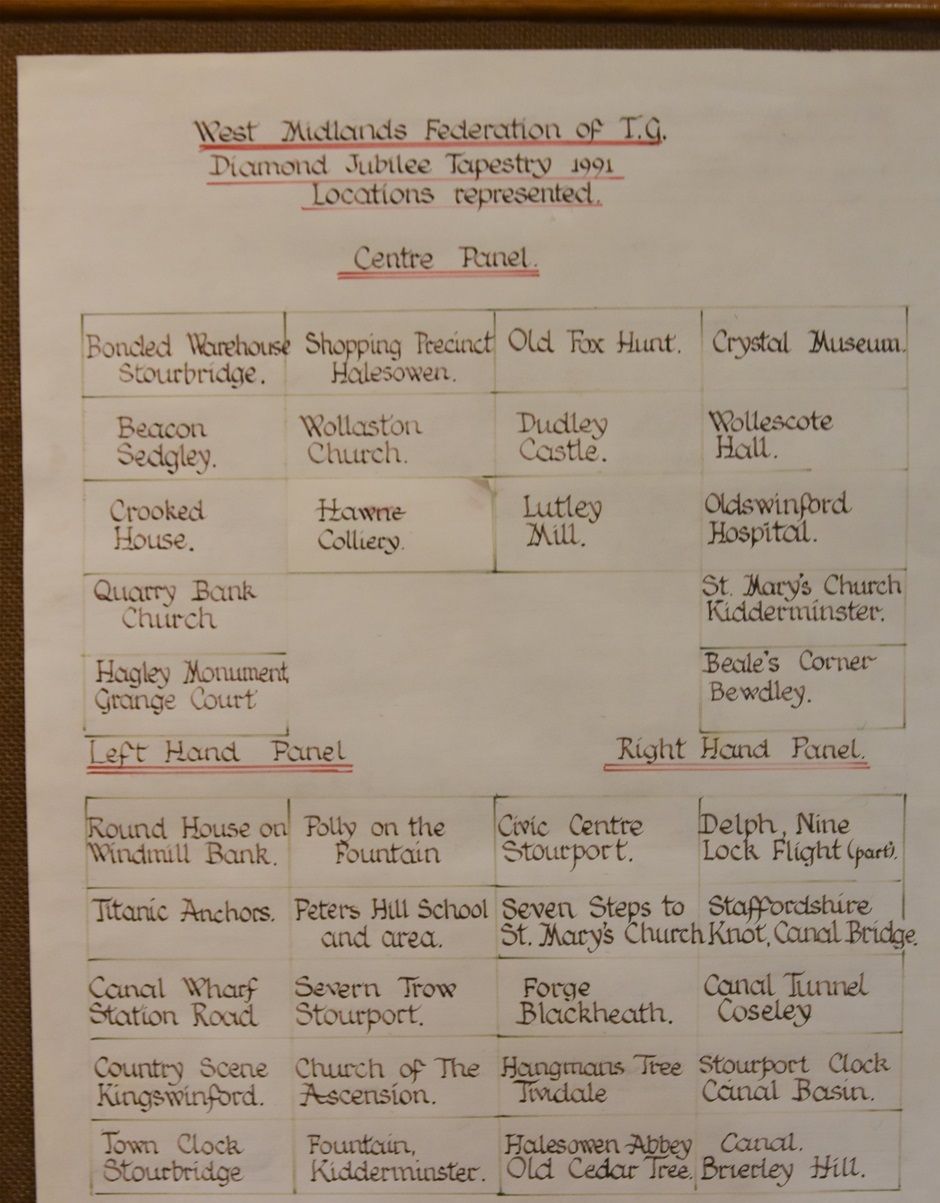 West Midlands Federation of T.G.
Diamond Jubilee Tapestry 1991
Locations represented.
Centre Panel.
Bonded Warehouse
Stourbridge.
Shopping Precinct
Halesowen.
Old Fox Hunt.
Crystal Museum.
Beacon
Sedgley.
Wollaston
Church.
Dudley
Castle.
Wollescote
Hall.
Crooked
House.
Hawne
Colliery.
Lutley
Mill.
Oldswinford
Hospital.
Quarry Bank
Church
St. Mary's Church
Kidderminster.
Hagley Monument
Grange Court
Beale's Corner
Bewdley.
Left Hand Panel
Round House on
Windmill Bank.
Polly on the
Fountain
Titanic Anchors.
Peters Hill School
and area.
Canal Wharf
Station Road
Severn Trow
Stourport.
Country Scene
Kingswinford.
Church of The
Ascension.
Town Clock
Stourbridge
Fountain,
Kidderminster.
Right Hand Panel.
Civic Centre
Stourport.
Delph, Nine
Lock Flight (part).
Seven Steps to
St. Mary's Church
Staffordshire
Knot, Canal Bridge.
Forge
Blackheath.
Canal Tunnel
Coseley
Hangmans Tree
Tividale
Stourport Clock
Canal Basin.
Halesowen Abbey
Old Cedar Tree.
Canal.
Brierley Hill.